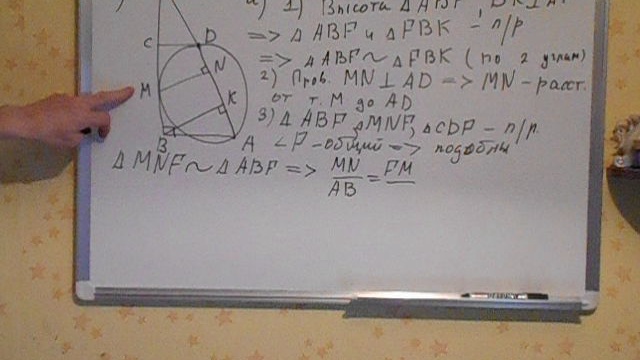 а) 1) Высота △ABF, BK⊥AF
=> △ABF и △FBK - п/р
=> △ABF ~ △FBK (по 2 углам)
2) Пров. MN⊥AD => MN - расст.
от т. M до AD
3) △ABF, △MNF, △CDF - п/р.
∠F - общий => подобны
△MNF ~ △ABF => MN/AB = FM
C
D
N
M
K
B
A